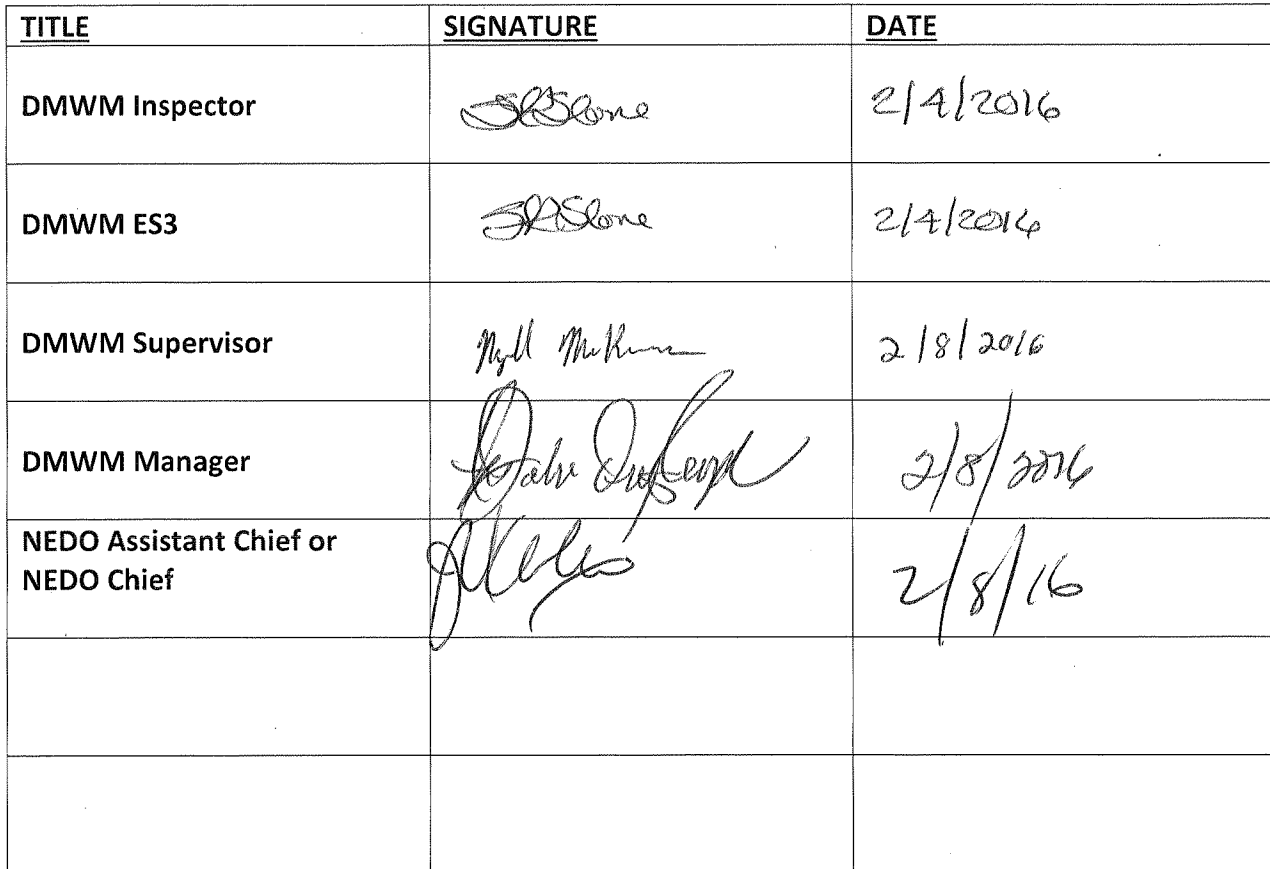 TITLE SIGNATURE DATE
DMWM Inspector Slone 2/4/2016
DMWM ES3 Slone 2/4/2016
DMWM Supervisor 2/8/2016
DMWM Manager 2/8/2016
NEDO Assistant Chief or
NEDO Chief 2/8/16